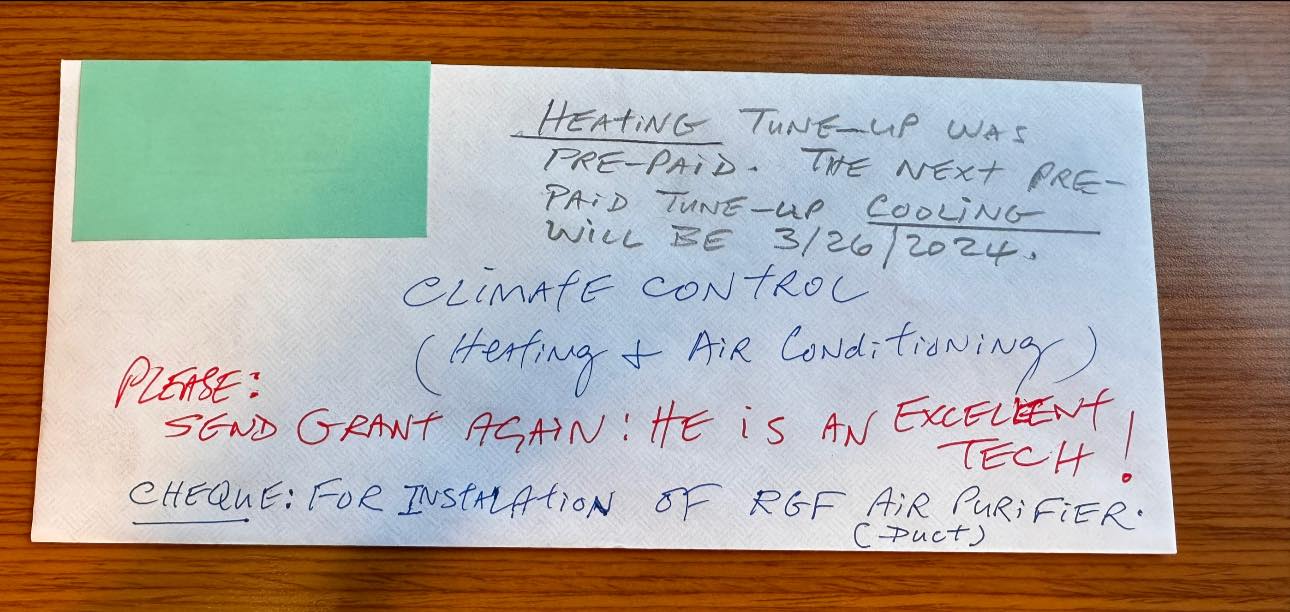 HEATING TUNE-UP WAS
PRE-PAID. THE NEXT PRE-
PAID TUNE-UP COOLING
WILL BE 3/26/2024.
CLIMATE CONTROL
(Heating & Air Conditioning)
PLEASE:
SEND GRANT AGAIN: HE iS AN EXCELLENT
TECH!
CHEQUE: FOR INSTALATION OF RGF AiR PURiFiER.
(Duct)